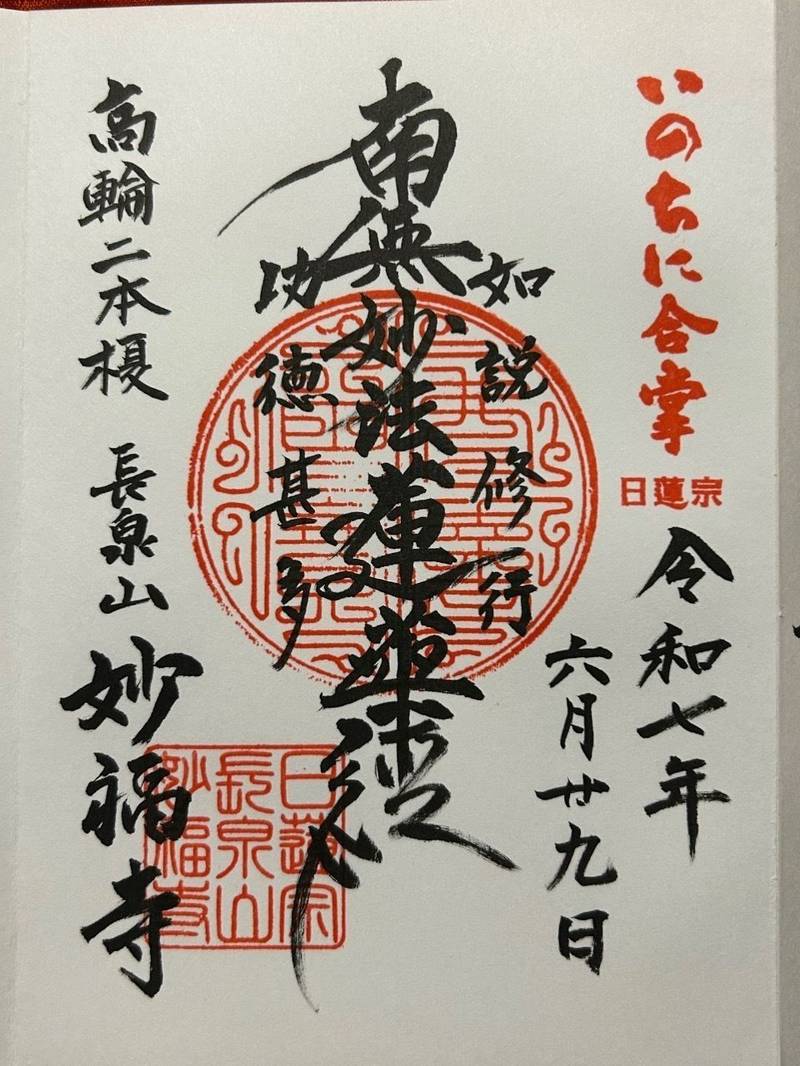 いのちに合掌
日蓮宗
令和七年
六月廿九日
如説修行
南無妙法蓮華経
功徳甚多
高輪二本榎
長泉山
妙福寺
日蓮宗
長泉山
妙福寺